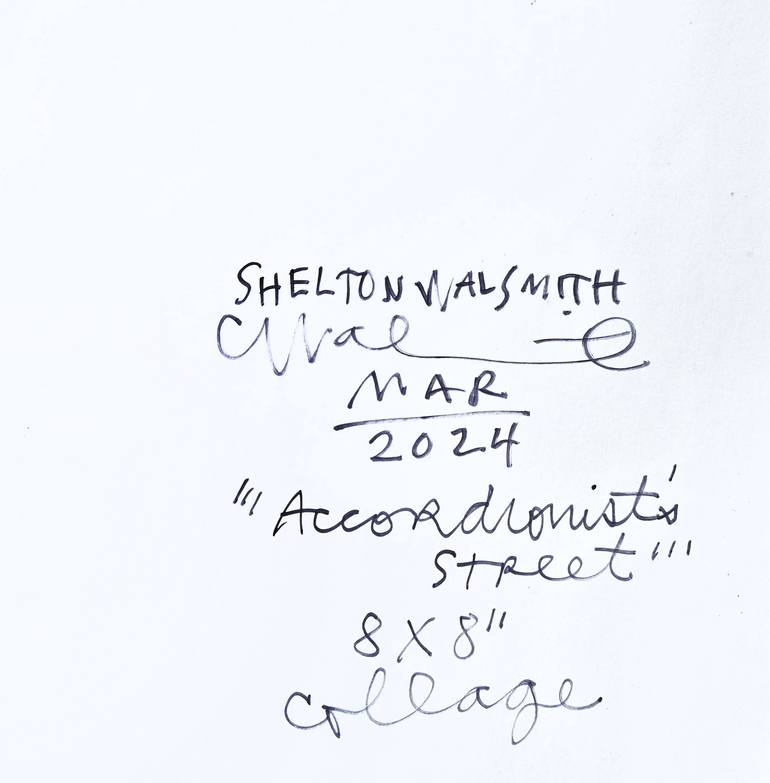 SHELTON WALSMITH
MAR
2024
"'Accordionist's
Street"'
8 X 8"
collage